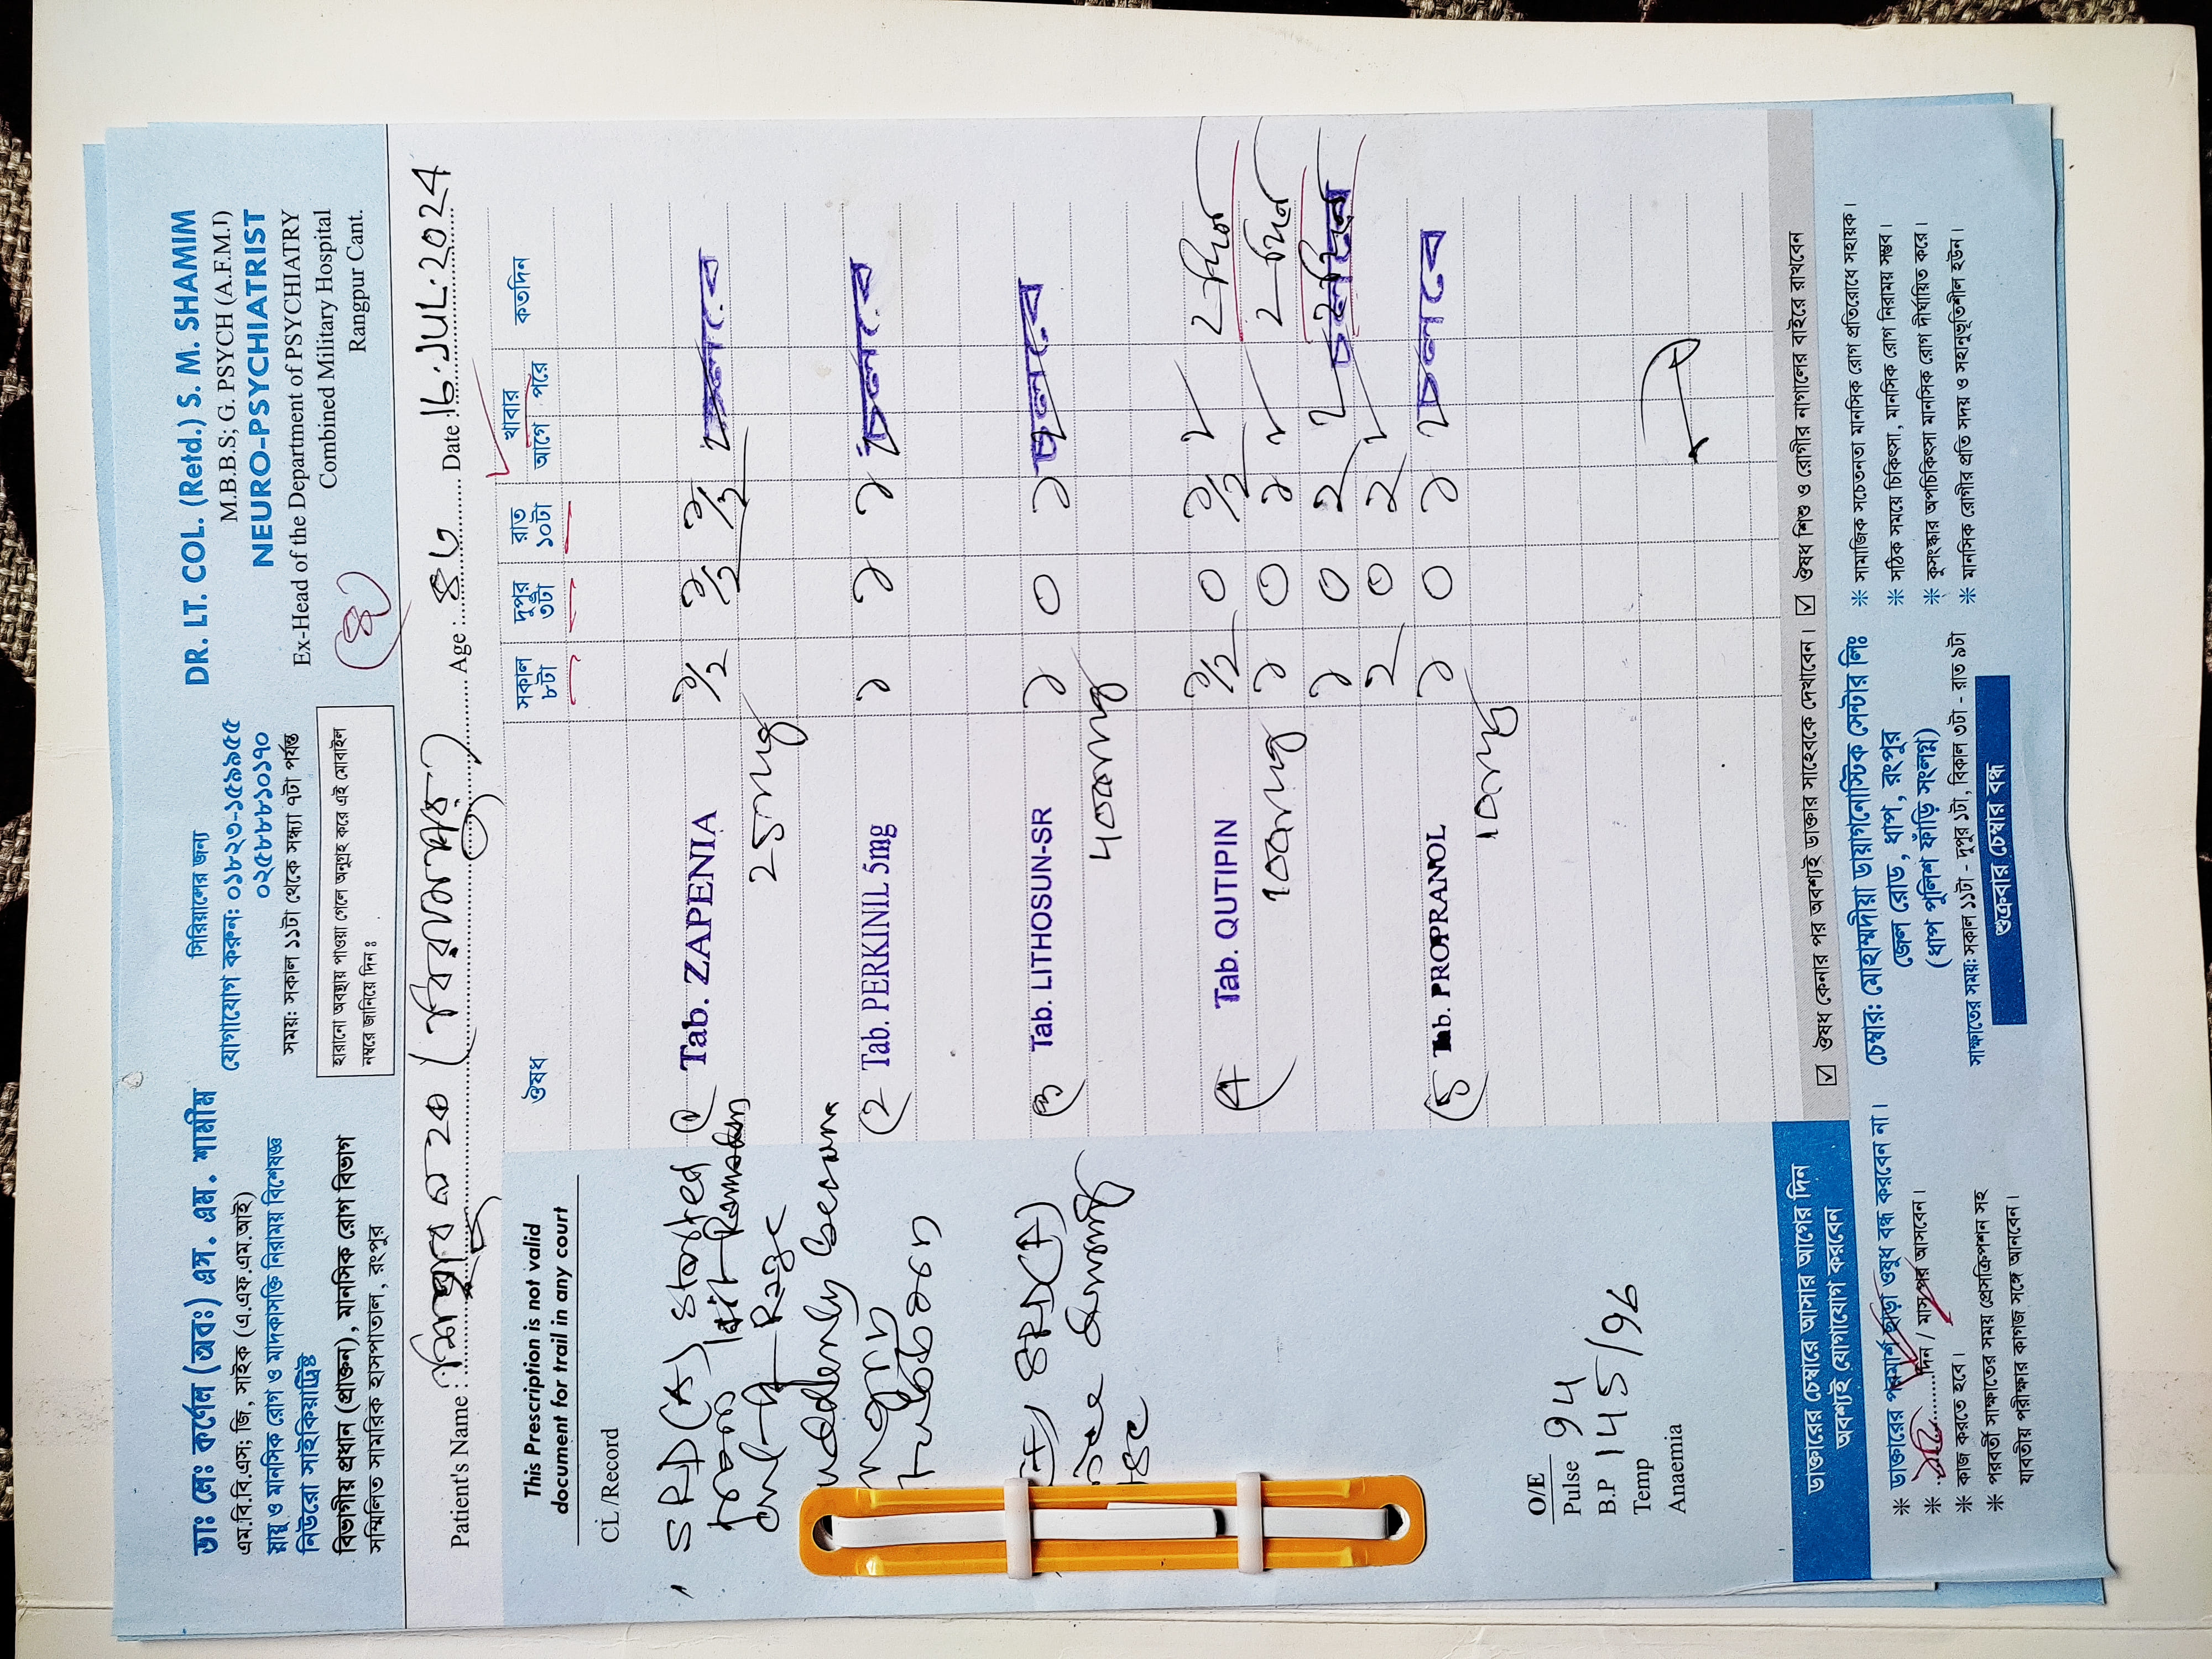 ডাঃ লেঃ কর্ণেল (অবঃ) এস. এম. শামীম
এম.বি.বি.এস; জি, সাইক (এ.এফ.এম.আই)
স্নায়ু ও মানসিক রোগ ও মাদকাসক্তি নিরাময় বিশেষজ্ঞ
নিউরো সাইকিয়াট্রিষ্ট
বিভাগীয় প্রধান (প্রাক্তন), মানসিক রোগ বিভাগ
সম্মিলিত সামরিক হাসপাতাল, রংপুর
সিরিয়ালের জন্য
যোগাযোগ করুন: ০১৮২৩-১৫৯৯৫৫
০২৫৮৮৮১০১৭০
সময়: সকাল ১১টা থেকে সন্ধ্যা ৭টা পর্যন্ত
হারানো অবস্থায় পাওয়া গেলে অনুগ্রহ করে এই মোবাইল
নম্বরে জানিয়ে দিন ঃ
DR. LT. COL. (Retd.) S. M. SHAMIM
M.B.B.S; G. PSYCH (A.F.M.I)
NEURO-PSYCHIATRIST
Ex-Head of the Department of PSYCHIATRY
Combined Military Hospital
Rangpur Cant.
Patient's Name : হক (বিরামপুর) Age : Date : 16.JUL.2024
This Prescription is not valid
document for trail in any court
CL/Record
SPD(A) started
from
and Rage
suddenly became
angry
SPD(+)
O/E
Pulse 94
B.P 145/96
Temp
Anaemia
ঔষধ সকাল ৮টা দুপুর ৩টা রাত ১০টা খাবার আগে পরে কতদিন
Tab. ZAPENIA ১/২ ১/২ ১/২ চলবে
25mg
(2 Tab. PERKINIL 5mg ১ ১ ১ চলবে
(3 Tab. LITHOSUN-SR ১ 0 ১ চলবে
400mg
(4 Tab. QUTIPIN ১/২ 0 ১/২ ২ দিন
100mg ১ 0 ১ ২ দিন
১ 0 ২ ২ দিন চলবে
২ 0 ২
(5 Tab. PROPRANOL ১ 0 ১ চলবে
10mg
ঔষধ কেনার পর অবশ্যই ডাক্তার সাহেবকে দেখাবেন। ঔষধ শিশু ও রোগীর নাগালের বাইরে রাখবেন
ডাক্তারের চেম্বারে আসার আগের দিন
অবশ্যই যোগাযোগ করবেন
* ডাক্তারের পরামর্শ ছাড়া ওষুধ বন্ধ করবেন না।
* ............দিন / মাস পর আসবেন।
* কাজ করতে হবে।
* পরবর্তী সাক্ষাতের সময় প্রেসক্রিপশন সহ
যাবতীয় পরীক্ষার কাগজ সঙ্গে আনবেন।
চেম্বার: মোহাম্মদীয়া ডায়াগনোস্টিক সেন্টার লিঃ
জেল রোড, ধাপ, রংপুর
(ধাপ পুলিশ ফাঁড়ি সংলগ্ন)
সাক্ষাতের সময়: সকাল ১১টা - দুপুর ১টা, বিকাল ৩টা - রাত ৯টা
শুক্রবার চেম্বার বন্ধ
* সামাজিক সচেতনতা মানসিক রোগ প্রতিরোধে সহায়ক।
* সঠিক সময়ে চিকিৎসা, মানসিক রোগ নিরাময় সম্ভব।
* কুসংস্কার অপচিকিৎসা মানসিক রোগ দীর্ঘায়িত করে।
* মানসিক রোগীর প্রতি সদয় ও সহানুভূতিশীল হউন।